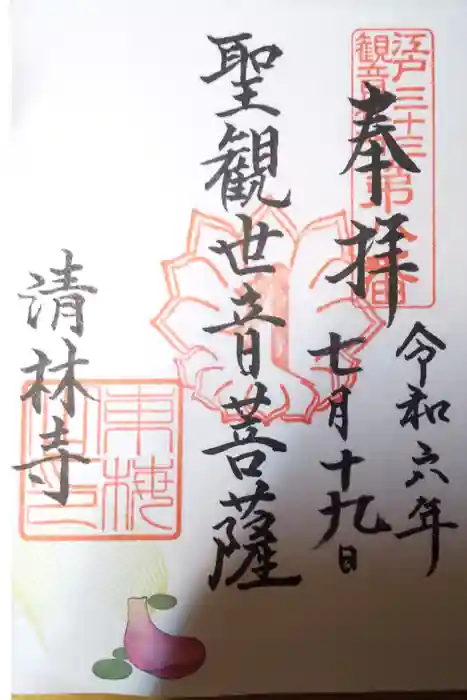 奉拝
令和六年
七月十九日
聖観世音菩薩
清林寺
江戸三十三
観音
第八番
東梅